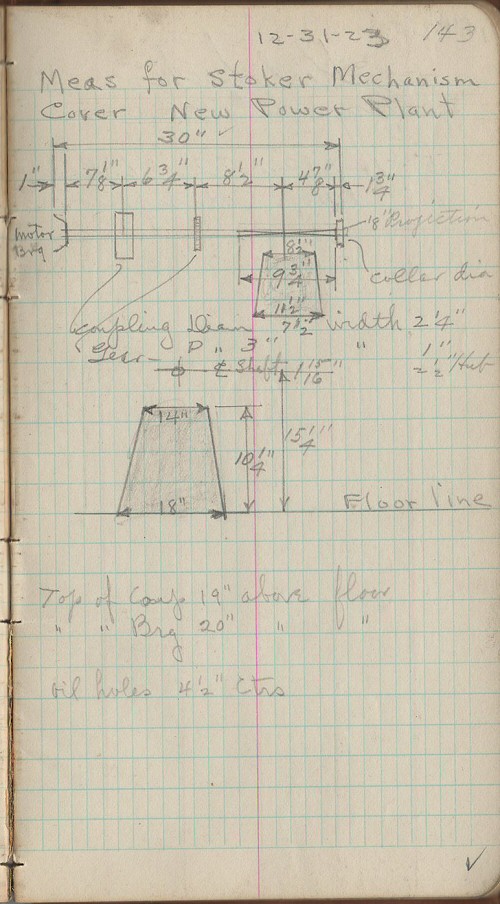 12-31-23 143
Meas for Stoker Mechanism
Cover New Power Plant
30"
1" 7 1/8" 6 3/4" 8 1/2" 4 7/8" 1 3/4"
motor
Brg
1/8" Projection
8 1/2"
9 3/4"
collar dia
11 1/2"
coupling Diam 7 1/2" width 2 1/4"
Gear - P " 3" " 1"
2 1/2" Hub
℄ Shaft 1 15/16"
14"
10 1/4"
15 1/4"
18"
Floor line
Top of Coup 19" above floor
" " Brg 20" " "
oil holes 4 1/2" Ctrs